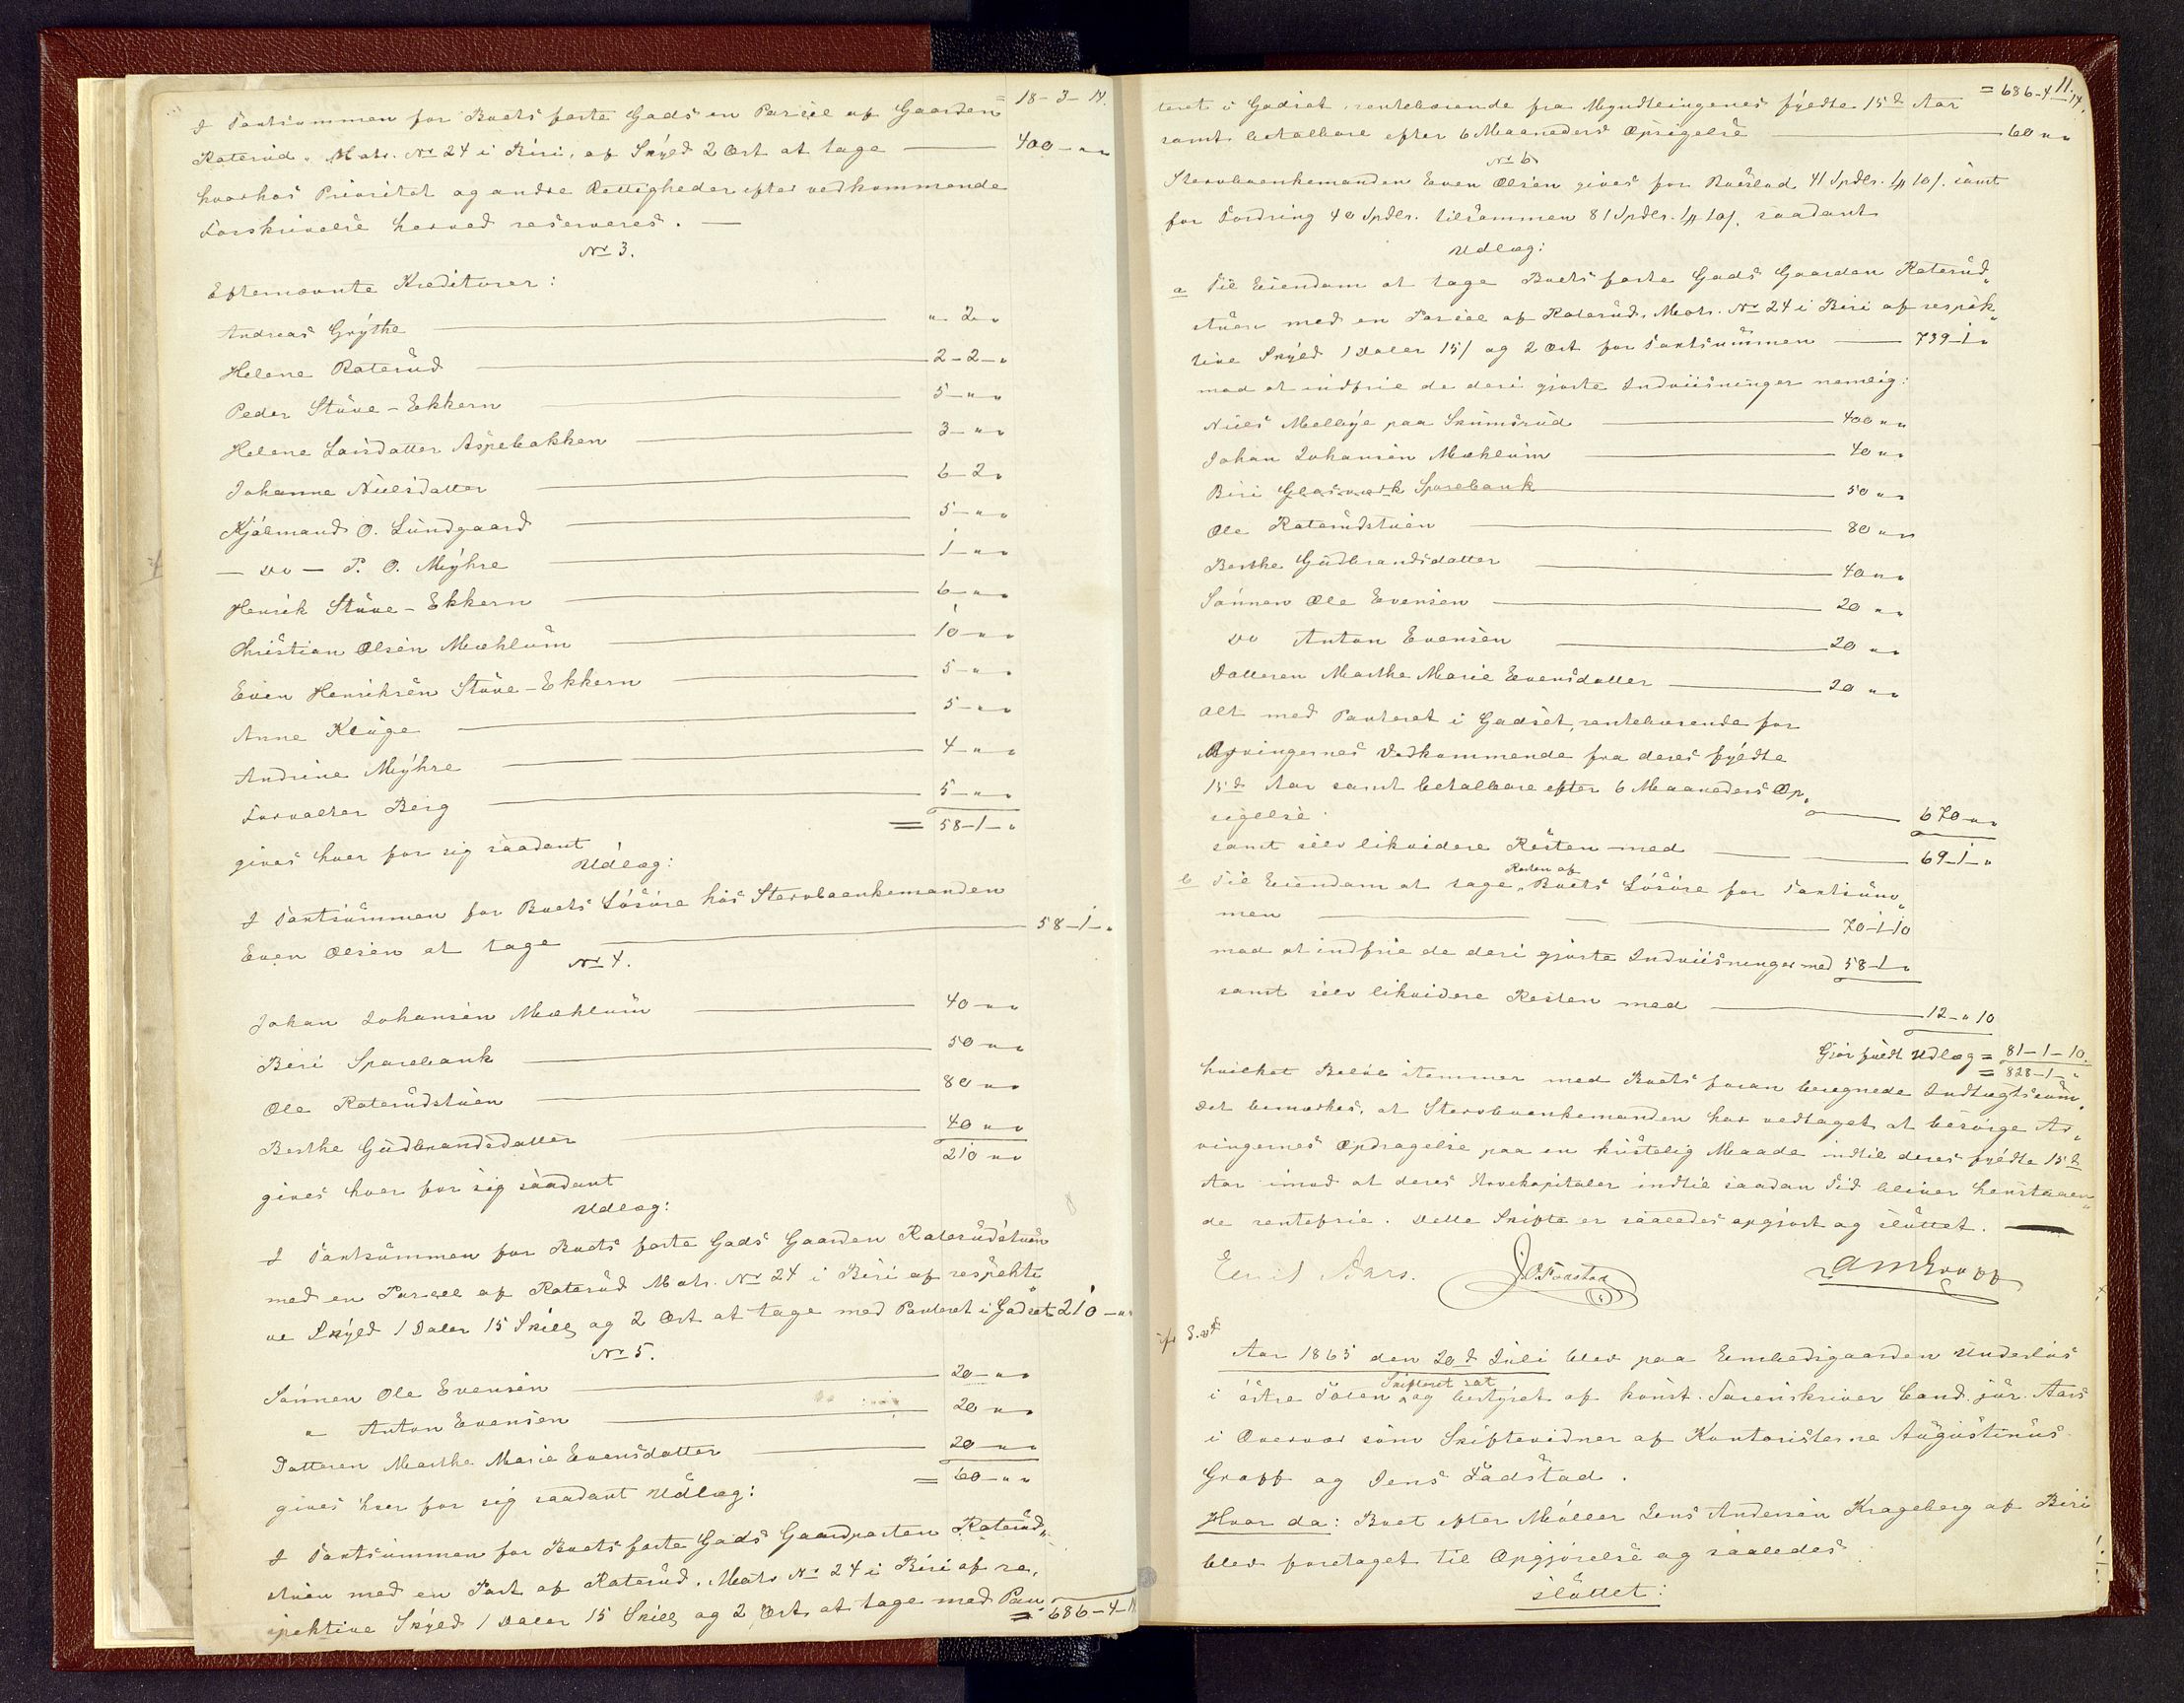 = 18-3-14.
I Taxtsummen for Boets faste Gods en Parcel af Gaarden
Raterud, Matr. No 24 i Biri, af Skyld 2 Ort at tage — 400-„„
hvorhos Prioritet og andre Rettigheder efter vedkommende
Forskrivelse herved reserveres. —
No 3.
Efternævnte Kreditorer:
Andreas Grythe — „ 2 „
Helene Raterud — 2-2-„
Peder Stuve-Ekkern — 5-„„
Helene Larsdatter Aspebakken — 3-„„
Johanne Nielsdatter — 6-2„
Kjøbmand O. Lundgaard — 5-„„
— do — P. O. Myhre — 1-„„
Henrik Stuve-Ekkern — 6-„„
Christian Olsen Mæhlum — 10-„„
Even Henriksen Stuve-Ekkern — 5-„„
Anne Kluge — 5-„„
Andrine Myhre — 4-„„
Forvalter Berg — 5-„„
= 58-1-„
gives hver for sig saadant
Udlæg:
I Taxtsummen for Boets Løsøre hos Stervboenkemanden
Even Olsen at tage — 58-1-„
No 4.
Johan Johansen Mæhlum — 40-„„
Biri Sparebank — 50-„„
Ole Raterudstuen — 80-„„
Berthe Gudbrandsdatter — 40-„„
210„„
gives hver for sig saadant
Udlæg:
I Taxtsummen for Boets faste Gods Gaarden Raterudstuen
med en Parcel af Raterud Matr. No 24 i Biri af respekti
ve Skyld 1 Daler 15 Skill og 2 Ort at tage med Panteret i Godset 210-„„
No 5.
Sønnen Ole Evensen — 20-„„
„ Anton Evensen — 20-„„
Datteren Marthe Marie Evensdatter — 20-„„
= 60-„„
gives hver for sig saadant Udlæg:
I Taxtsummen for Boets faste Gods Gaardparten Raterud„
stuen med en Part af Raterud, Matr No 24 i Biri af re„
spektive Skyld 1 Daler 15 Skill og 2 Ort, at tage med Pan
= 686-4-14
= 686-4-14.
teret i Godset, rentebærende fra Myndlingenes fyldte 15de Aar
samt betalbare efter 6 Maaneders Opsigelse — 60„„
No 6
Stervboenkemanden Even Olsen gives for Boeslod 41 Spdlr. 1 # 10 /. samt
for Fordring 40 Spdlr. tilsammen 81 Spdlr. 1 # 10/. saadant
Udlæg:
a Til Eiendom at tage Boets faste Gods Gaarden Raterud„
stuen med en Parcel af Raterud, Matr. No 24 i Biri af respek„
tive Skyld 1 Daler 15 / og 2 Ort for Taxtsummen — 739-1„
mod at indfrie de deri gjorte Indviisninger nemlig:
Niels Melbye paa Skumsrud — 400„„
Johan Johansen Mæhlum — 40„„
Biri Glasværk Sparebank — 50„„
Ole Raterudstuen — 80„„
Berthe Gudbrandsdatter — 40„„
Sønnen Ole Evensen — 20„„
do Anton Evensen — 20„„
Datteren Marthe Marie Evensdatter — 20„„
Alt med Panteret i Godset, rentebærende for
Arvingernes Vedkommende fra deres fyldte
15de Aar samt betalbare efter 6 Maaneders Op„
sigelse — 670-„„
samt selv likvidere Resten med — 69-1-„
b Til Eiendom at tage Resten af Boets Løsøre for Taxtsum„
men — 70-1-10
mod at indfrie de deri gjorte Indviisninger med 58-1„
samt selv likvidere Resten med — 12-„10
Gjør fuldt Udlæg = 81-1-10.
= 828-1-„
hvilket Beløb stemmer med Boets foran beregnede Indtægtssum„
Det bemærkes, at Stervboenkemanden har vedtaget at besørge Ar„
vingernes Opdragelse paa en kristelig Maade indtil deres fyldte 15de
Aar imod at deres Arvekapitaler indtil saadan Tid bliver henstaaen„
de rentefrie. Dette Skifte er saaledes opgjort og sluttet. —
Emil Aars.
AMGropp
Aar 1865 den 20de Juli blev paa Embedsgaarden Underlus
i østre Toten Skifteret sat og bestyret af konst. Sorenskriver Cand. jur. Aars
i Overvær som Skiftevidner af Kontoristerne Augustinus
Gropp og Jens Fodstad.
Hvor da: Boet efter Møller Jens Andersen Krageberg af Biri
blev foretaget til Opgjørelse og saaledes
sluttet: